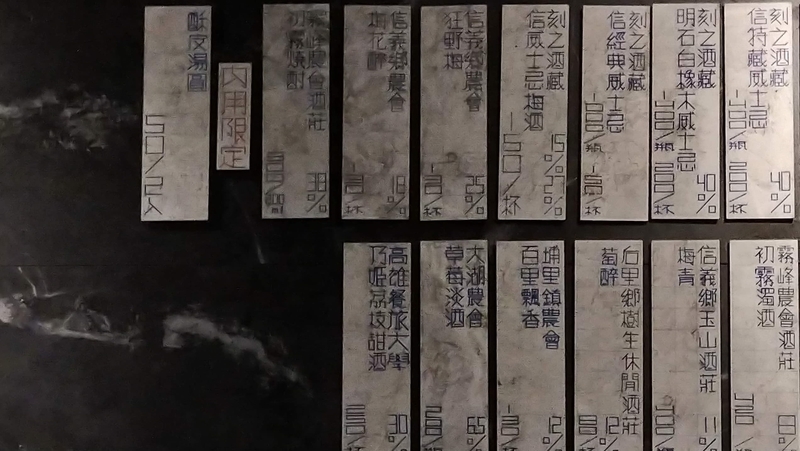 刻之酒藏
信特藏威士忌
40%
200/杯
刻之酒藏
明石白橡木威士忌
40%
200/杯
刻之酒藏
信經典威士忌
刻之酒藏
信威士忌梅酒
150/杯
信義鄉農會
狂野梅
25%
信義鄉農會
梅花醉
18%
霧峰農會酒莊
初霧燒酎
38%
內用限定
酥皮湯圓
50/2人
霧峰農會酒莊
初霧濁酒
信義鄉玉山酒莊
梅青
11%
石里鄉樹生休閒酒莊
葡醉
12%
埔里鎮農會
百里飄香
12%
大湖農會
草莓淡酒
高雄餐旅大學
乃姬荔枝甜酒
30%